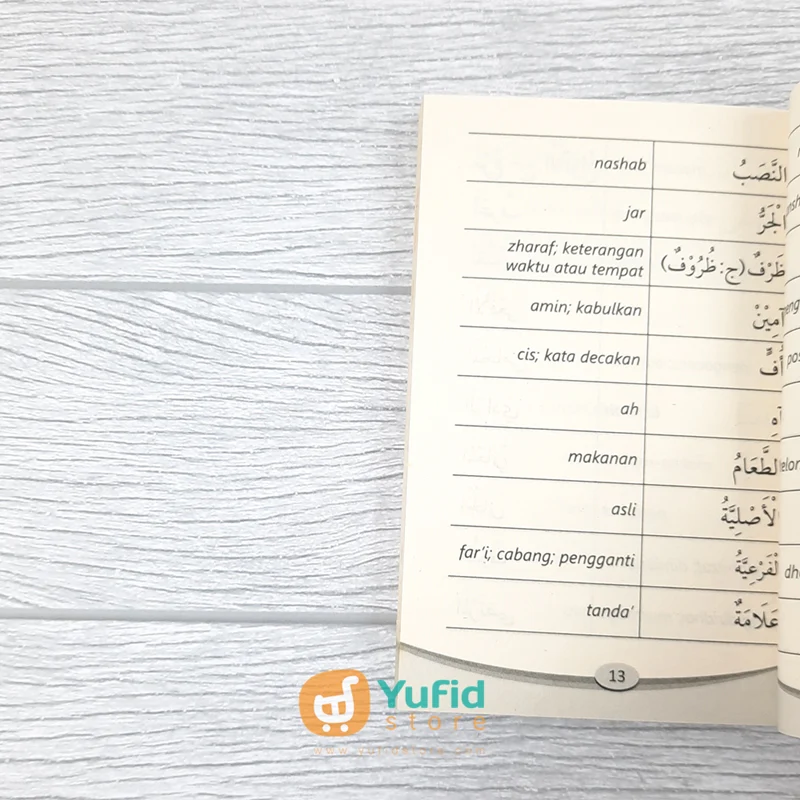 nashab النَّصَبُ
jar الْجَرُّ
zharaf; keterangan
waktu atau tempat ظَرْفٌ (ج: ظُرُوْفٌ)
amin; kabulkan آمِيْنْ
cis; kata decakan أُفٍّ
ah آهِ
makanan الطَّعَامُ
asli الْأَصْلِيَّةُ
far'i; cabang; pengganti الْفَرْعِيَّةُ
tanda' عَلَامَةٌ
13
Yufid
store